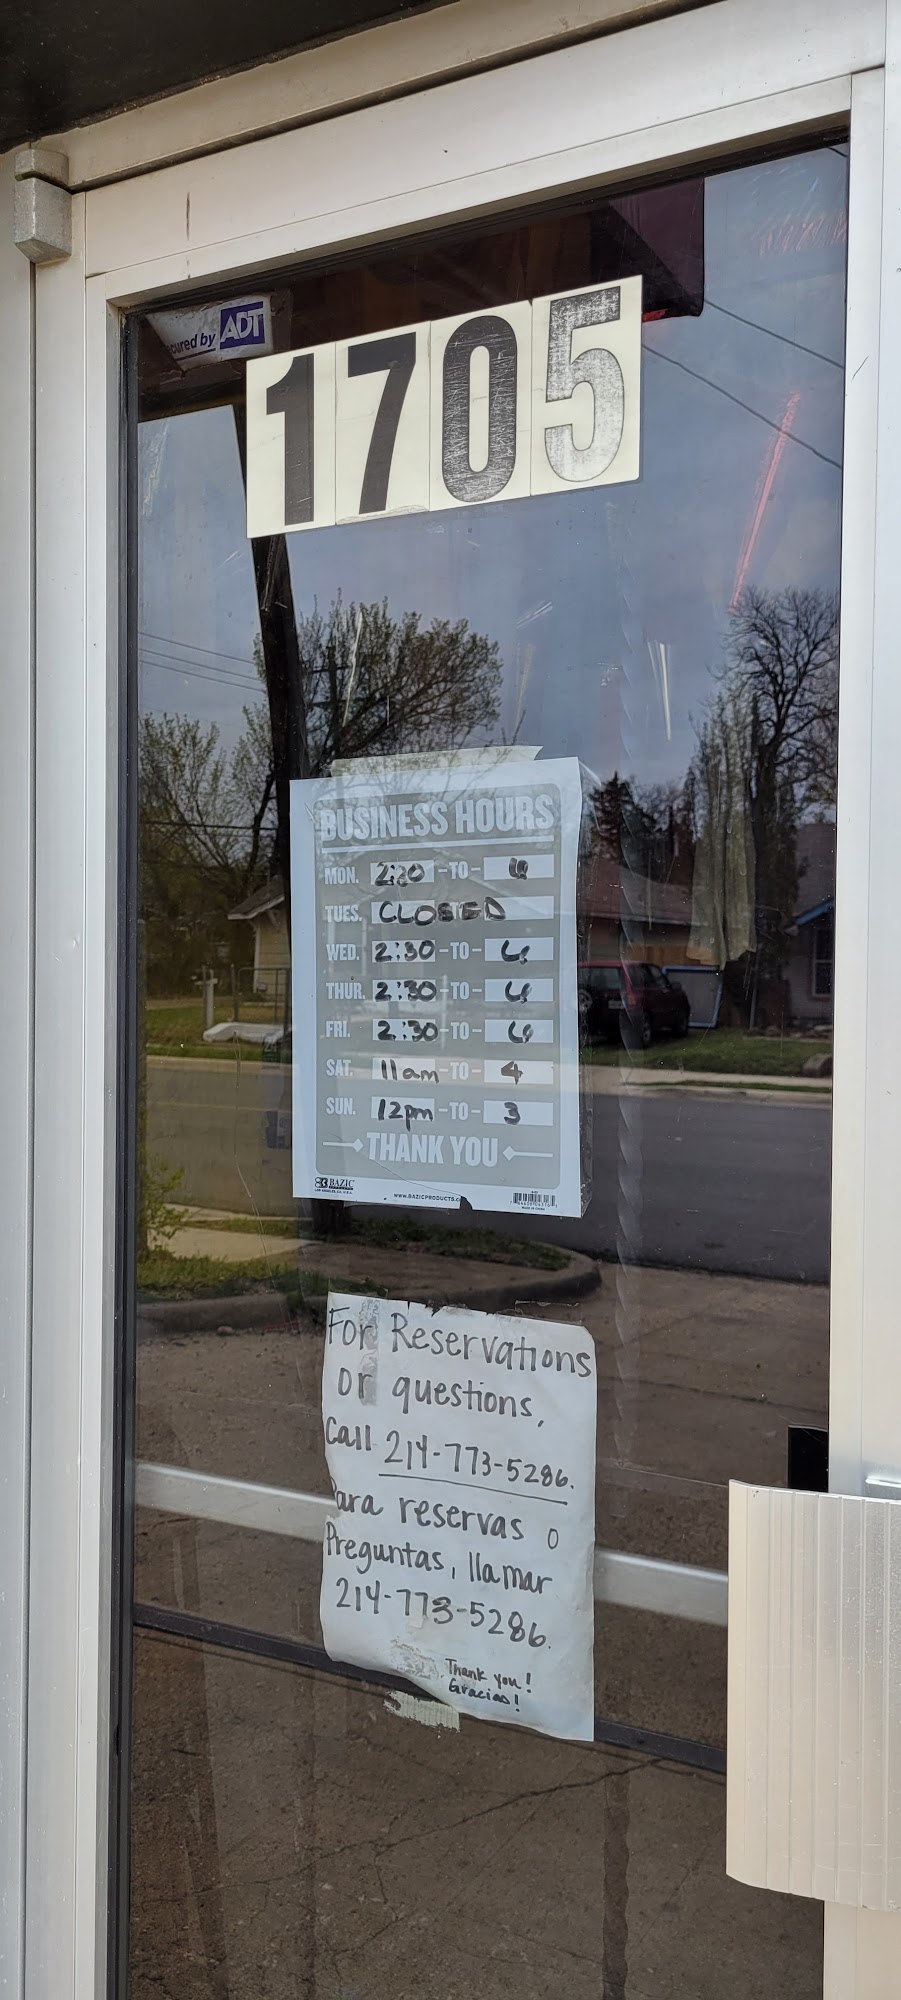 cured by ADT
1705
BUSINESS HOURS
MON. 2:30 -TO- 6
TUES. CLOSED
WED. 2:30 -TO- 6
THUR. 2:30 -TO- 6
FRI. 2:30 -TO- 6
SAT. 11am -TO- 4
SUN. 12pm -TO- 3
THANK YOU
BAZIC
WWW.BAZICPRODUCTS.C
For Reservations
or questions,
Call 214-773-5286.
Para reservas o
Preguntas, llamar
214-773-5286.
Thank you!
Gracias!